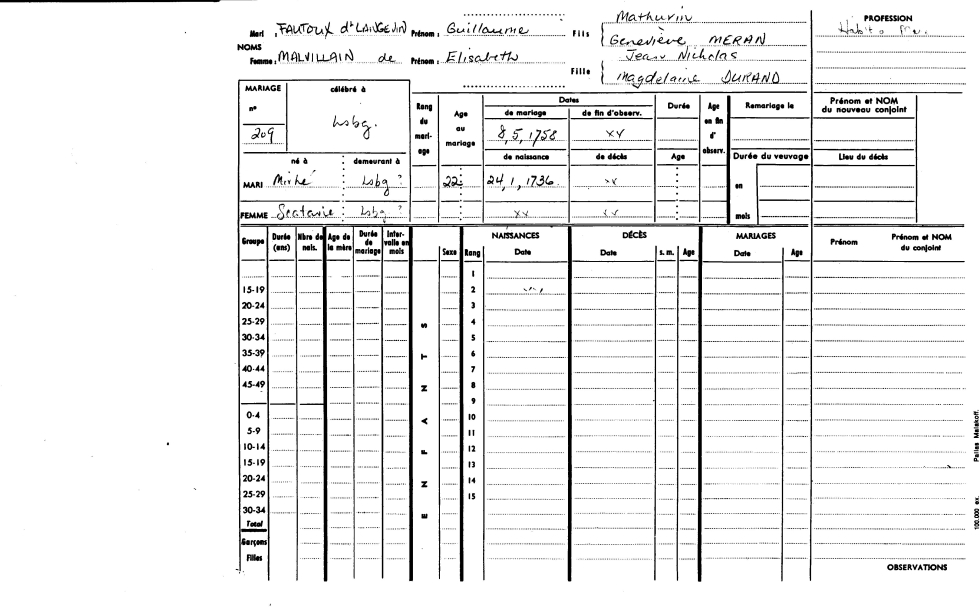 Mathurin
PROFESSION
Mari : FAUTOUX d'LANGEVIN Prénom : Guillaume Fils
Geneviève MERAN
NOMS
Jean Nicholas
Femme : MALVILLAIN de Prénom : Elisabeth
Fille
Magdelaine DURAND
MARIAGE célébré à
Rang du mari-age
Age au mariage
Dates
Durée
Age en fin d' observ.
Remariage le
Prénom et NOM du nouveau conjoint
n°
de mariage de fin d'observ.
209 Lsbg.
8,5,1758 XY
de naissance de décès Age Durée du veuvage Lieu du décès
né à demeurant à
MARI Lsbg ? 22 24,1,1736 en
FEMME Lsbg ? mois
Groupe Durée (ans) Nbre de nais. Age de la mère Durée de mariage Inter-valle en mois
NAISSANCES DÉCÈS MARIAGES
Sexe Rang Date Date s. m. Age Date Age
Prénom Prénom et NOM du conjoint
1
15-19 2
20-24 3
25-29 S 4
30-34 5
35-39 T 6
40-44 7
45-49 N 8
9
0-4 A 10
5-9 11
10-14 F 12
15-19 13
20-24 N 14
25-29 15
30-34 E
Total
Garçons
Filles
OBSERVATIONS
100.000 ex. Pallas Malakoff.